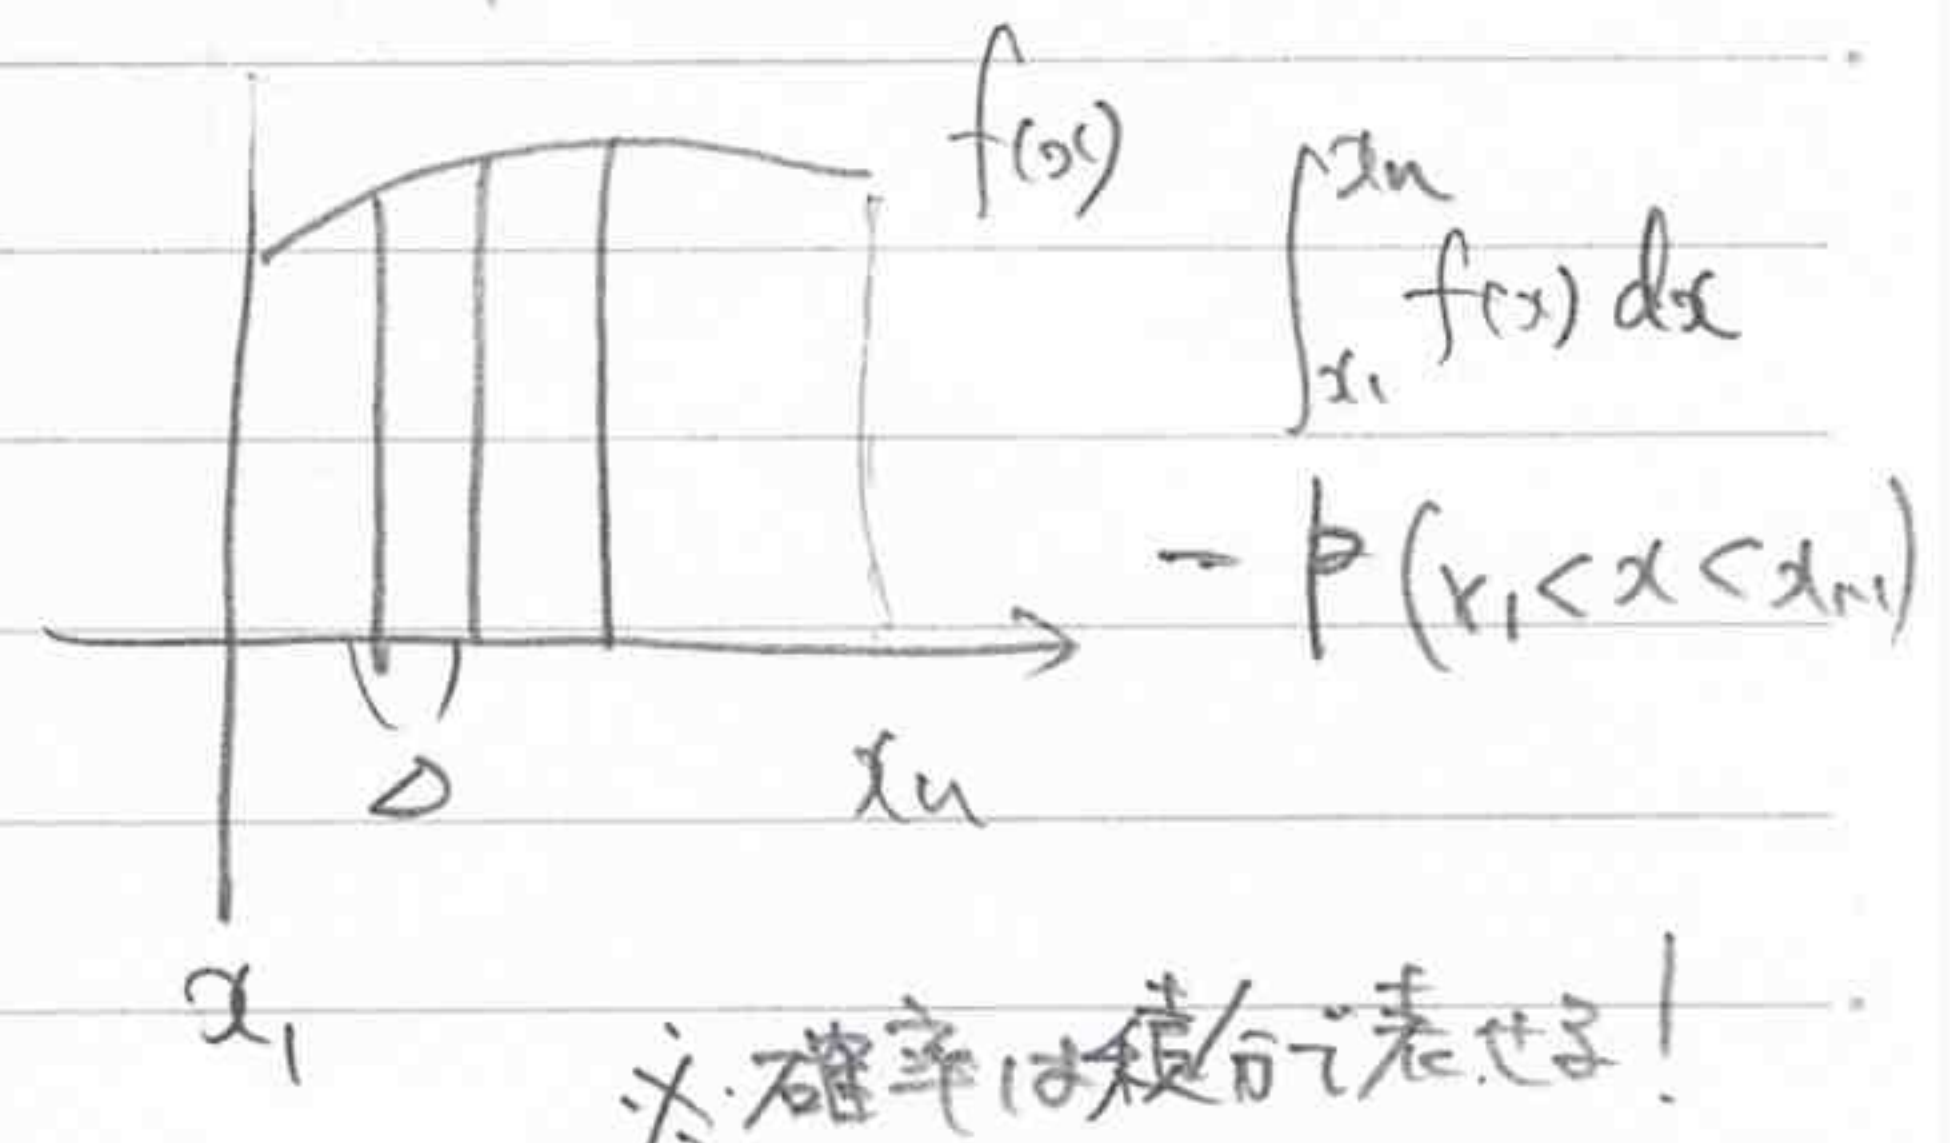 f(x)
∫_{x₁}^{xₙ} f(x) dx
- P(x₁ < x < xₙ₊₁)
Δ
xₙ
x₁
※確率は積分で表せる!